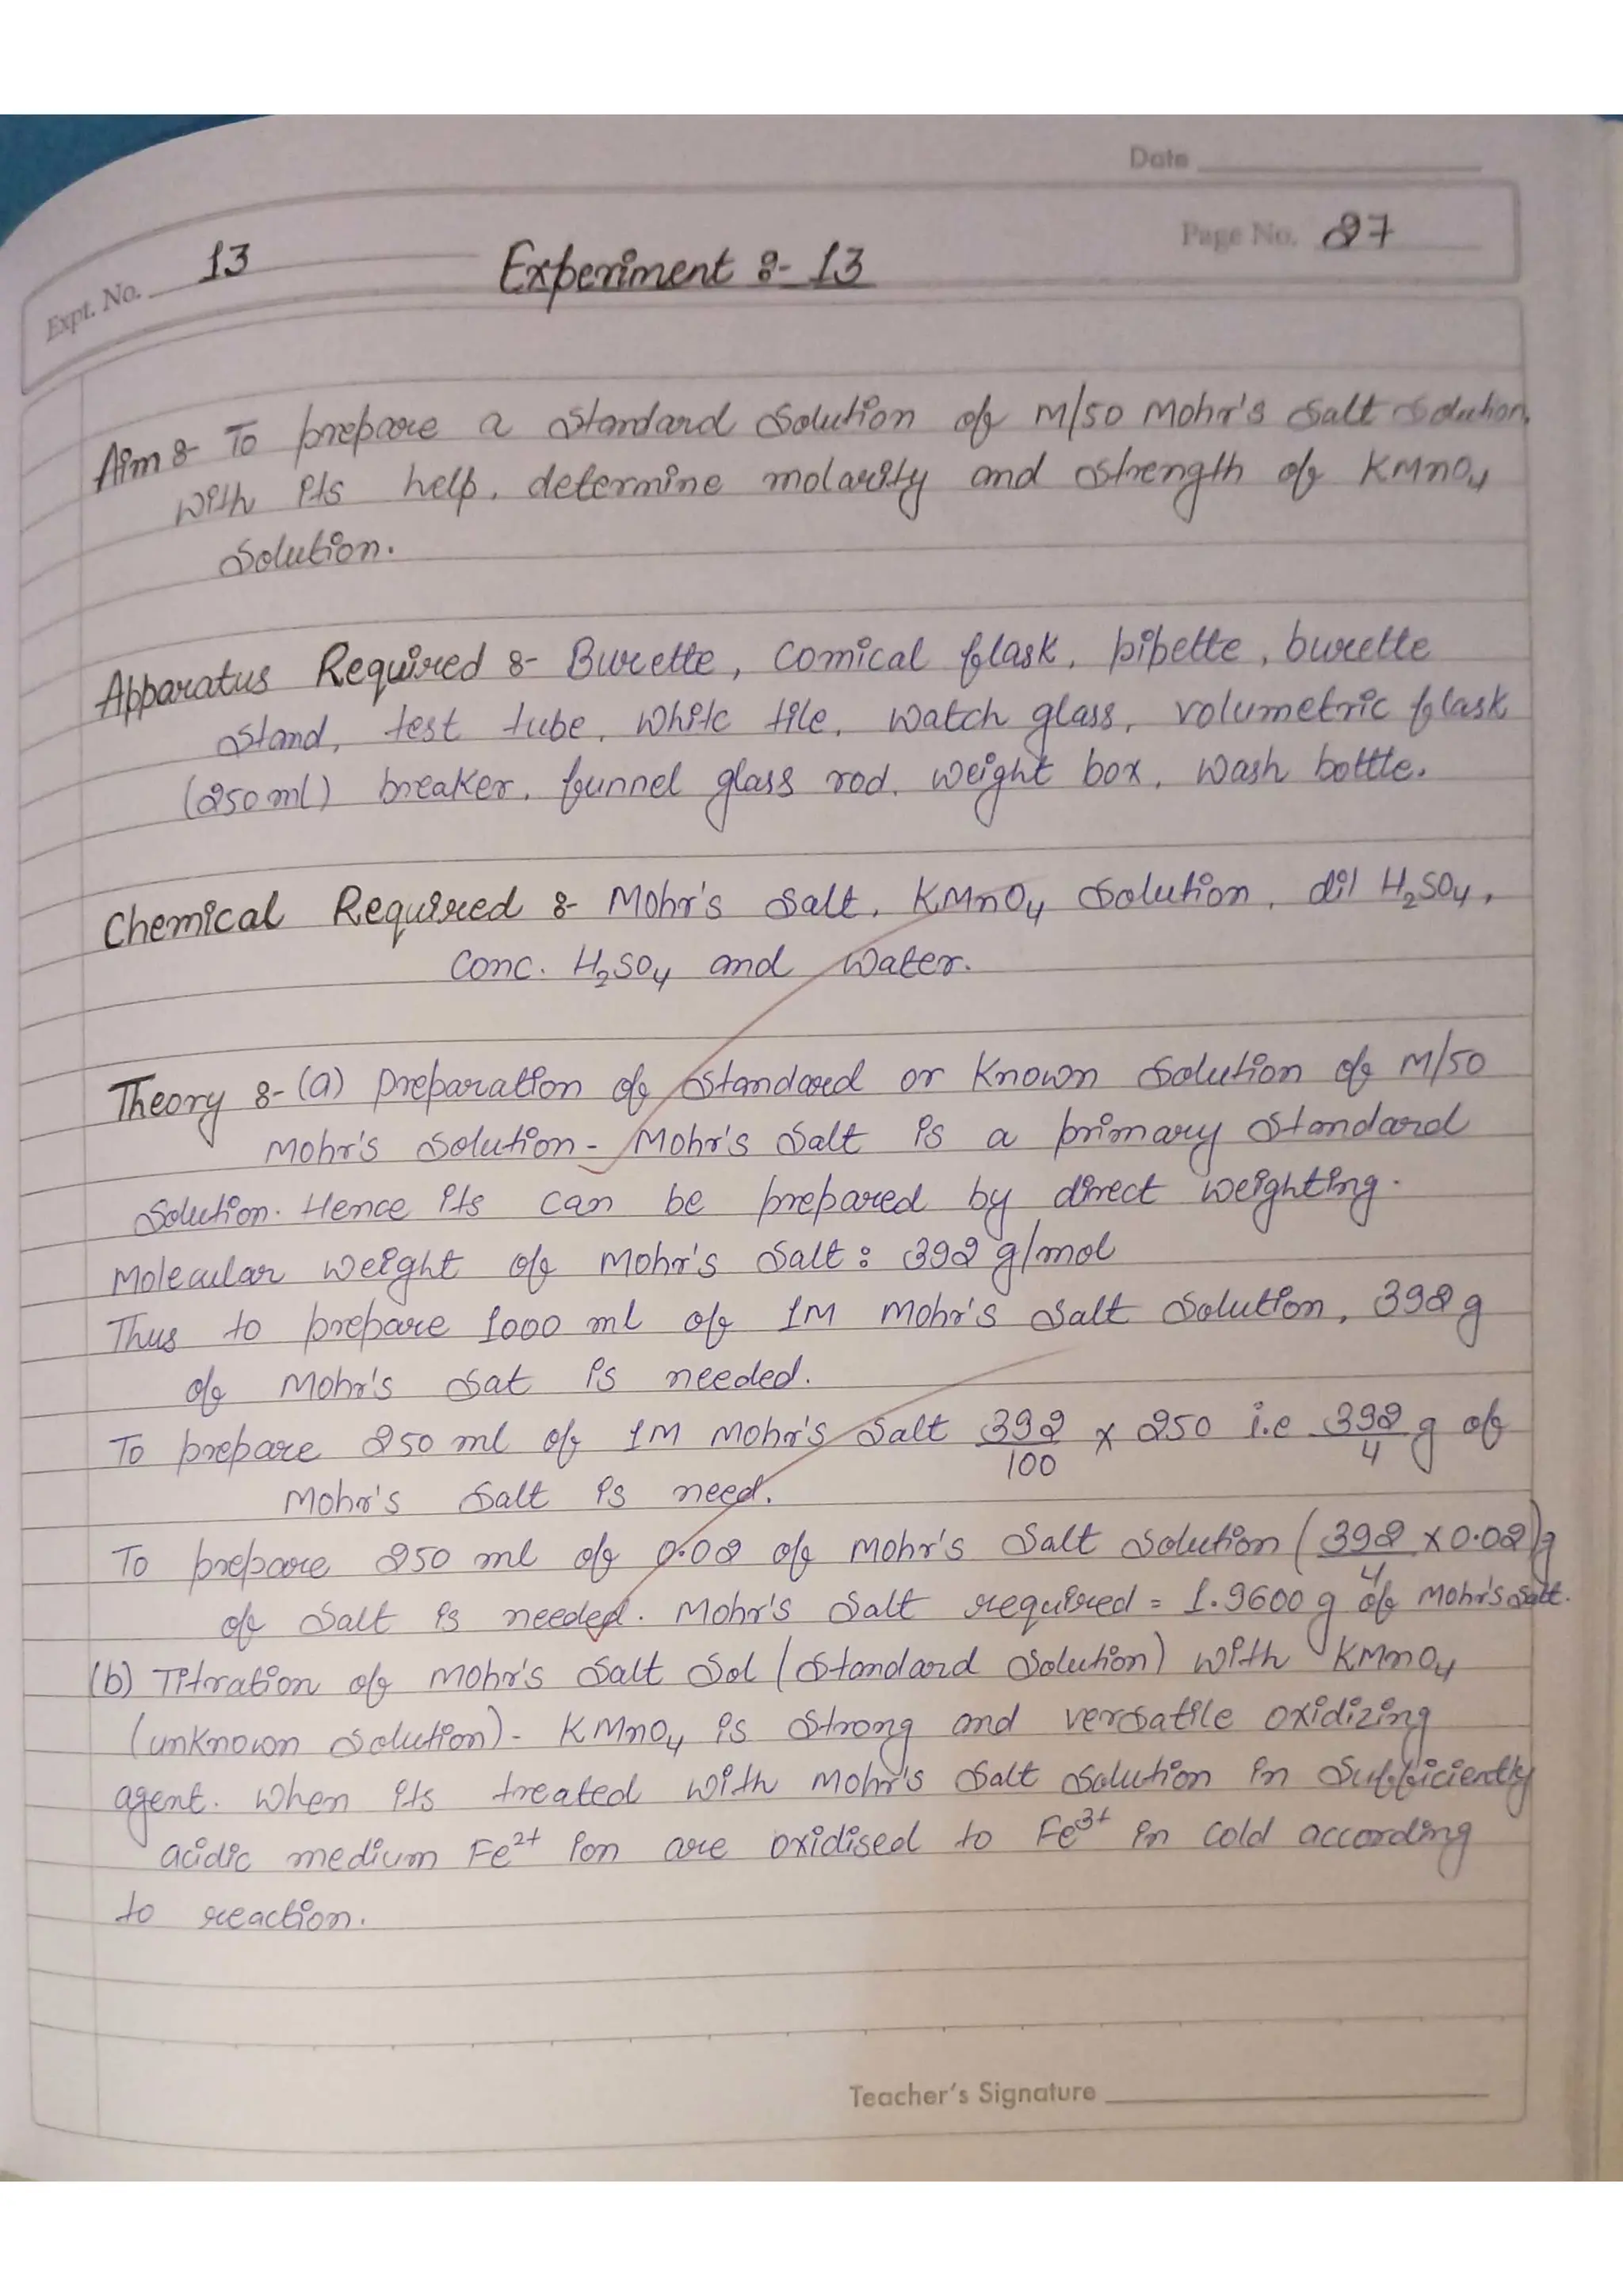 Date
Expt. No. 13
Experiment :- 13
Page No. 27
Aim :- To prepare a standard solution of M/50 Mohr's salt solution.
with its help, determine molarity and strength of KMnO₄
solution.
Apparatus Required :- Burette, comical flask, pipette, burette
stand, test tube, white tile, watch glass, volumetric flask
(250 ml) breaker, funnel glass rod, weight box, wash bottle.
Chemical Required :- Mohr's salt, KMnO₄ solution, dil H₂SO₄,
conc. H₂SO₄ and water.
Theory :- (a) Preparation of standard or known solution of M/50
Mohr's solution - Mohr's salt is a primary standard
solution. Hence its can be prepared by direct weighting.
Molecular weight of Mohr's salt : 392 g/mol
Thus to prepare 1000 ml of 1M Mohr's salt solution, 392 g
of Mohr's sat is needed.
To prepare 250 ml of 1M Mohr's salt 392/100 x 250 i.e 392/4 g of
Mohr's salt is need.
To prepare 250 ml of 0.02 of Mohr's salt solution (392/4 x 0.02)g
of salt is needed. Mohr's salt required = 1.9600 g of Mohr's salt.
(b) Titration of Mohr's salt sol (standard solution) with KMnO₄
(unknown solution) - KMnO₄ is strong and versatile oxidizing
agent. when its treated with Mohr's salt solution in sufficiently
acidic medium Fe²⁺ ion are oxidised to Fe³⁺ in cold according
to reaction.
Teacher's Signature